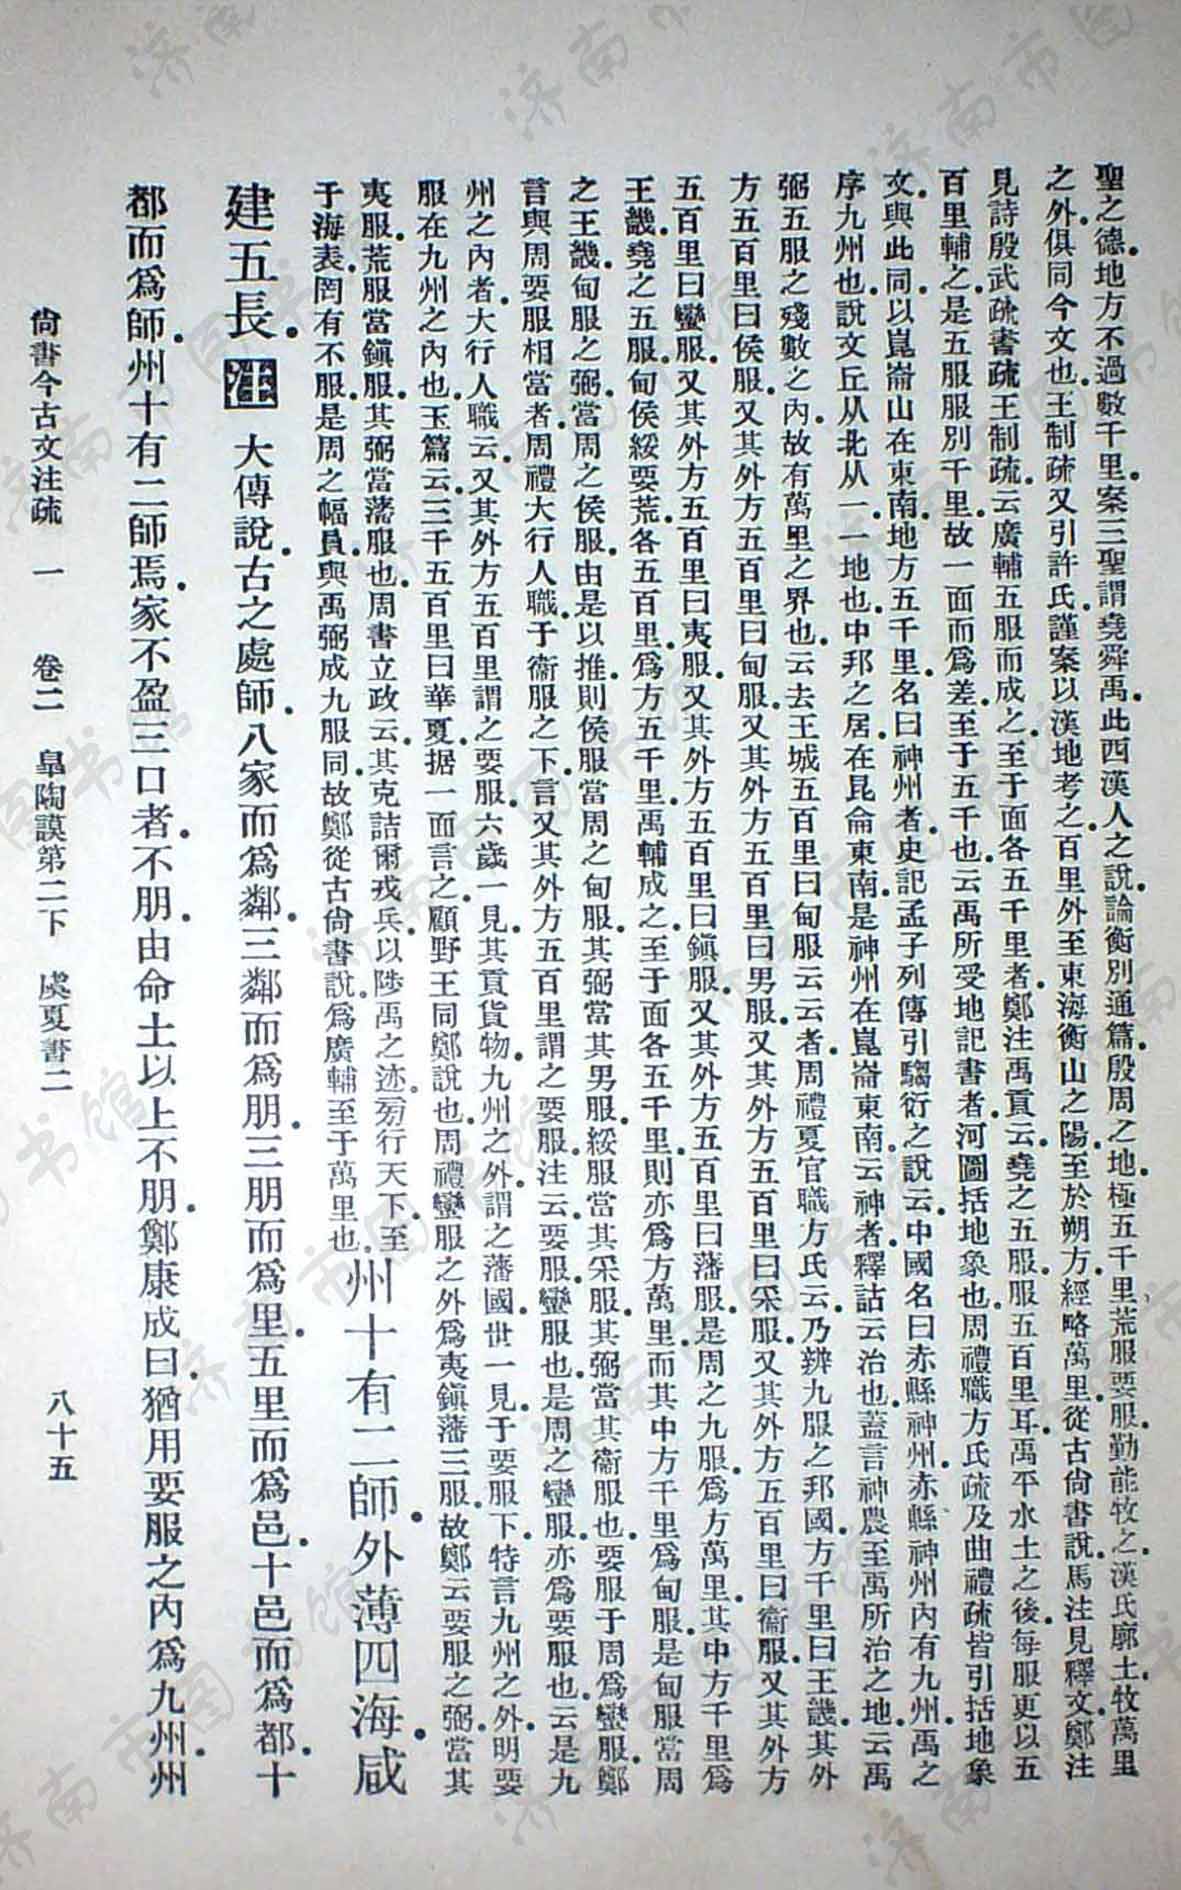 聖之德.地方不過數千里.案三聖謂堯舜禹.此西漢人之說.論衡別通篇.殷周之地.極五千里.荒服要服.勤能牧之.漢氏廓土.牧萬里
之外.俱同今文也.王制疏又引許氏謹案.以漢地考之.百里外至東海衡山之陽.至於朔方.經略萬里.從古尙書說.馬注見釋文.鄭注
見詩殷武疏書疏王制疏.云廣輔五服而成之.至于面各五千里者.鄭注禹貢云.堯之五服.服五百里耳.禹平水土之後.每服更以五
百里輔之.是五服服別千里.故一面而爲差.至于五千也.云禹所受地記書者.河圖括地象也.周禮職方氏疏及曲禮疏皆引括地象
文.與此同.以崑崙山在東南.地方五千里.名曰神州者.史記孟子列傳引騶衍之說云.中國名曰赤縣神州.赤縣神州內有九州.禹之
序九州也.說文丘从北从一.一地也.中邦之居.在昆侖東南.是神州在崑崙東南.云神者.釋詁云治也.蓋言神農至禹所治之地.云禹
弼五服之殘數之內.故有萬里之界也.云去王城五百里曰甸服云云者.周禮夏官職方氏云.乃辨九服之邦國.方千里曰王畿.其外
方五百里曰侯服.又其外方五百里曰甸服.又其外方五百里曰男服.又其外方五百里曰采服.又其外方五百里曰衞服.又其外方
五百里曰蠻服.又其外方五百里曰夷服.又其外方五百里曰鎭服.又其外方五百里曰藩服.是周之九服.爲方萬里.其中方千里爲
王畿.堯之五服.甸侯綏要荒.各五百里.爲方五千里.禹輔成之.至于面各五千里.則亦爲方萬里.而其中方千里爲甸服.是甸服當周
之王畿.甸服之弼.當周之侯服.由是以推.則侯服當周之甸服.其弼當其男服.綏服當其采服.其弼當其衞服也.要服于周爲蠻服.鄭
言與周要服相當者.周禮大行人職.于衞服之下.言又其外方五百里謂之要服.注云.要服.蠻服也.是周之蠻服.亦爲要服也.云是九
州之內者.大行人職云.又其外方五百里謂之要服.六歲一見.其貢貨物.九州之外.謂之藩國.世一見.于要服下.特言九州之外.明要
服在九州之內也.玉篇云.三千五百里曰華夏.据一面言之.顧野王同鄭說也.周禮蠻服之外爲夷鎭藩三服.故鄭云要服之弼.當其
夷服.荒服當鎭服.其弼當藩服也.周書立政云.其克詰爾戎兵.以陟禹之迹.㫄行天下.至
于海表.罔有不服.是周之幅員.與禹弼成九服同.故鄭從古尙書說.爲廣輔至于萬里也.州十有二師.外薄四海.咸
建五長.注 大傳說.古之處師.八家而爲鄰.三鄰而爲朋.三朋而爲里.五里而爲邑.十邑而爲都.十
都而爲師.州十有二師焉.家不盈三口者不朋.由命士以上不朋.鄭康成曰.猶用要服之內爲九州.州
尙書今古文注疏 一 卷二 臯陶謨第二下 虞夏書二 八十五